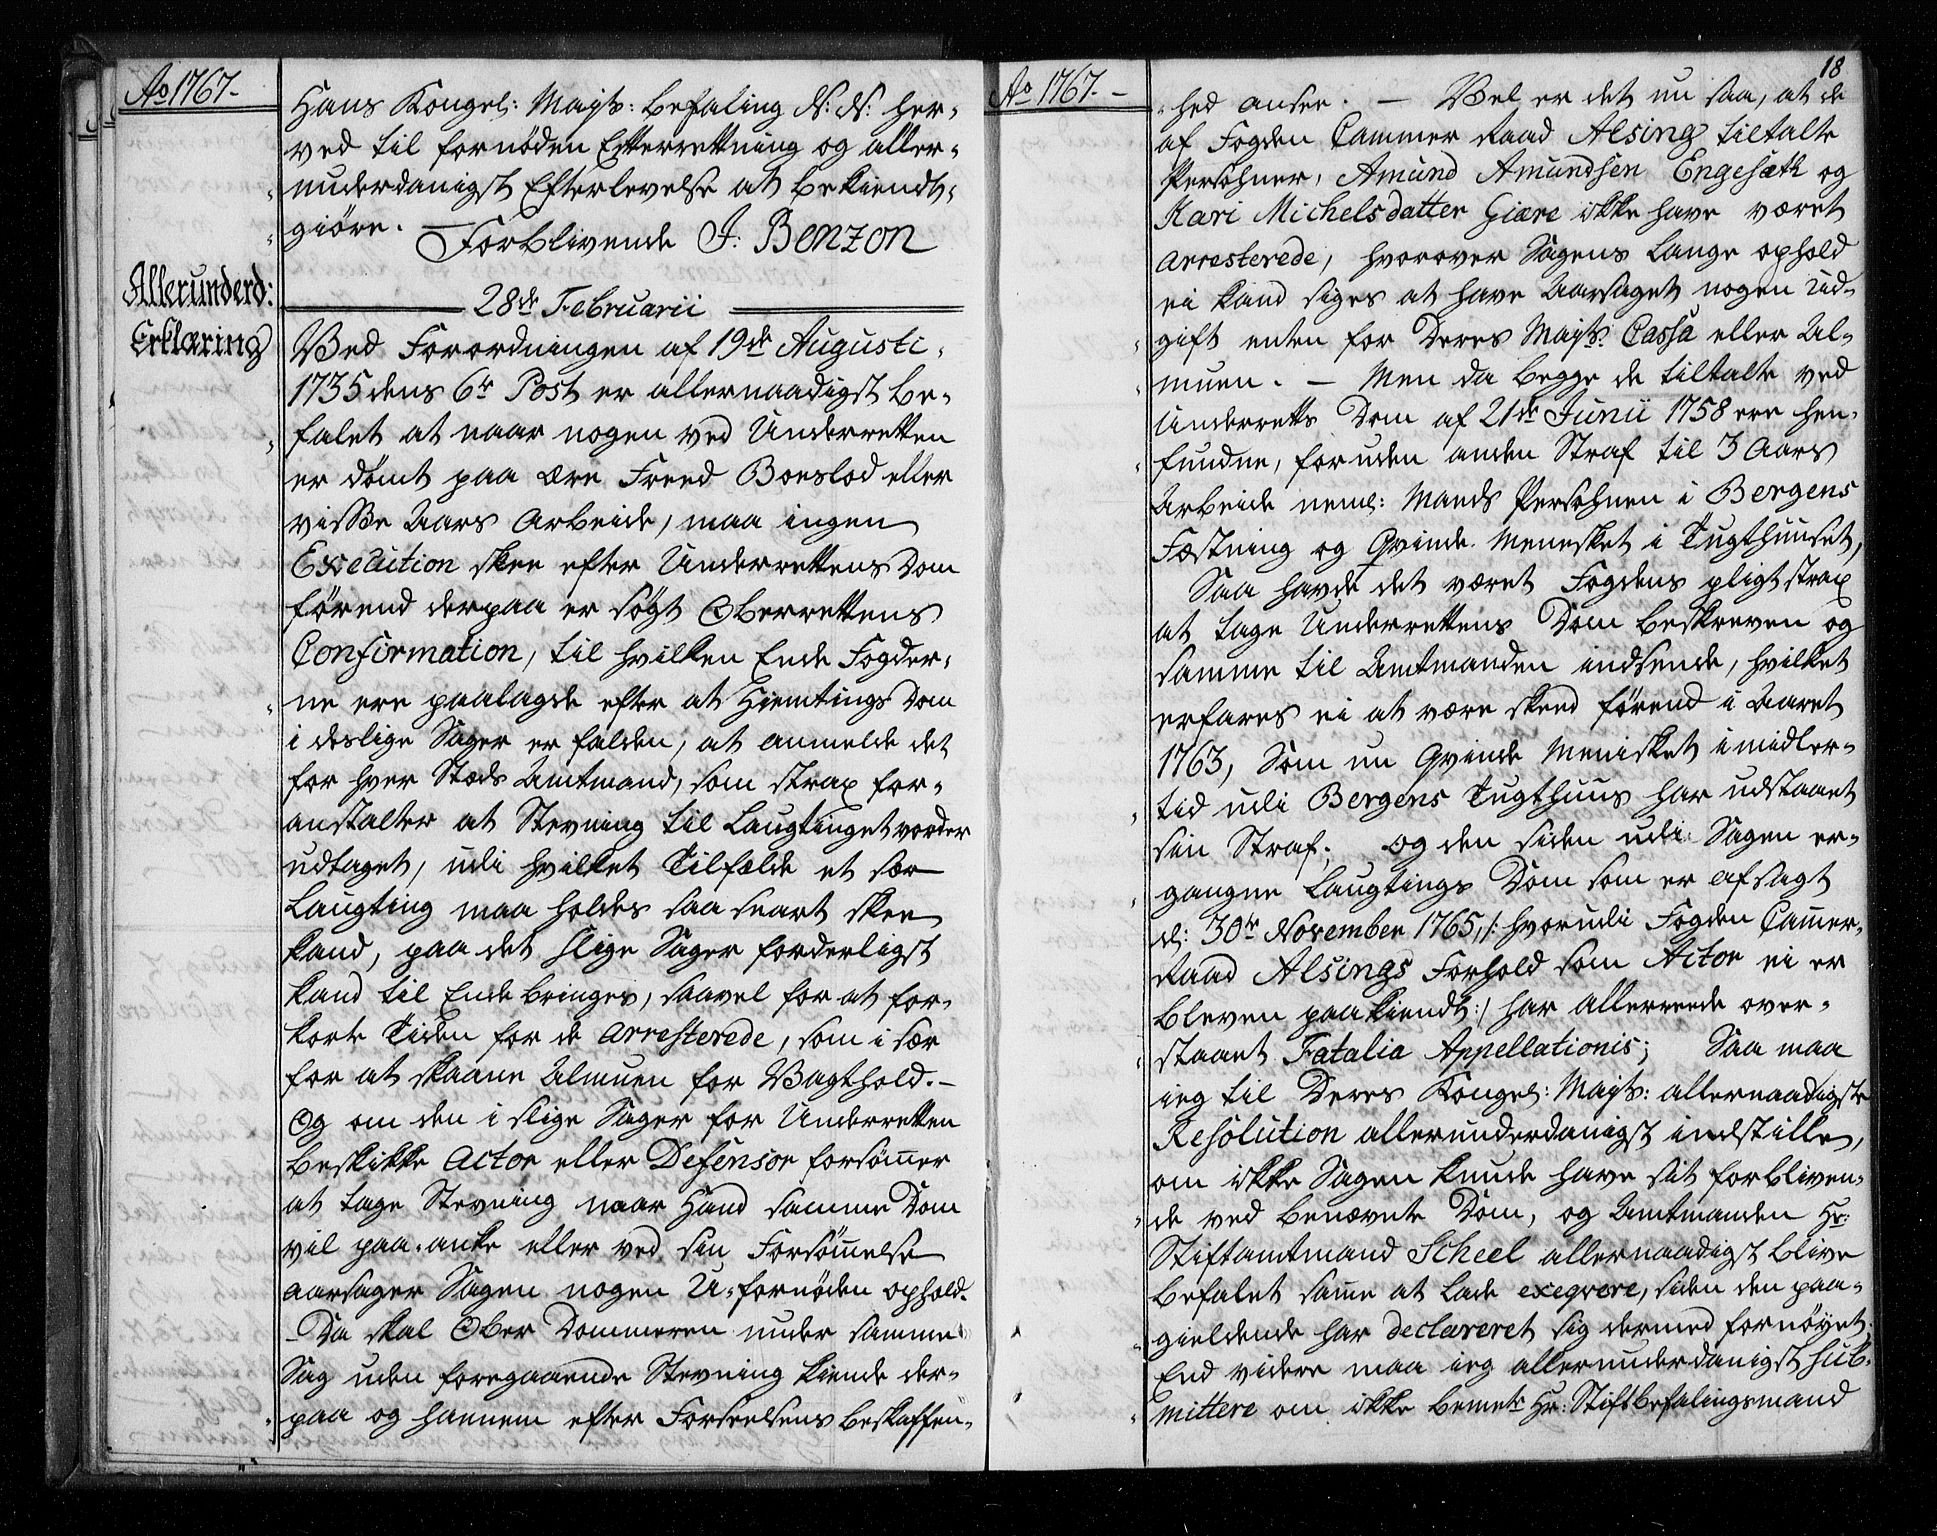 Ao 1767.
Hans Kongel: Mayts: befaling N: N: her-
ved til fornøden Efterrettning og aller-
underdanigst Efterlevelse at bekiendt-
giöre. Forblivende J: Benzon
28de Februarii
Allerunderd:
Erklæring
Ved Forordningen af 19de Augusti
1735 dens 6te Post er allernaadigst be-
falet at naar nogen ved Underretten
er dömt paa ære Freed Boeslod eller
visse Aars Arbeide, maa ingen
Execution skee efter Underrettens Dom
förend derpaa er sögt Oberrettens
Confirmation, til hvilken Ende Fogder-
ne ere paalagde efter at Hiemtings Dom
i deslige Sager er falden, at anmelde det
for hver Stæds Amtmand, som strax for-
anstalter at Stevning til Laugtinget vorder
udtaget, udi hvilket Tilfælde et sær
Laugting maa holdes saa snart skee
kand, paa det slige Sager forderligst
kand til Ende bringes, saavel for at for-
korte Tiden for de arresterede, som i sær
for at skaane Almuen for Vagthold. -
Og om den i slige Sager for Underretten
beskikke Actor eller Defensor forsömer
at tage Stevning naar Hand samme Dom
vil paa-anke eller ved sin Forsömelse
aarsager Sagen nogen U-fornöden ophold.
- Da skal Ober Dommeren under samme
Sag uden foregaaende Stevning kiende der-
paa og hannem efter Forseelsens beskaffen-
18
Ao 1767. -
hed ansee. - Vel er det nu saa, at de
af Fogden Cammer Raad Alsing tiltalte
Persohner, Amund Amundsen Engesæth og
Kari Michelsdatter Giære ikke have været
arresterede, hvorover Sagens lange ophold
ei kand siges at have Aarsaget nogen ud-
gift enten for Deres Mayts: Cassa eller Al-
muen. - Men da begge de tiltalte ved
Underretts Dom af 21de Junii 1758 ere hen-
fundne, foruden anden Straf til 3 Aars
Arbeide neml: Mands Persohnen i Bergens
Fæstning og Qvinde Mennesket i Tugthuuset,
Saa havde det været Fogdens pligt strax
at tage Underrettens Dom beskreven og
samme til Amtmanden indsende, hvilket
erfares ei at være skeed förend i Aaret
1763, Som nu Qvinde Menisket imidler-
tid udi Bergens Tugthuus har udstaaet
sin Straf; og den siden udi Sagen er-
gangne Laugtings Dom som er afsagt
d: 30te November 1765, /: hvorudi Fogden Camer-
Raad Alsings Forhold som Actor ei er
bleven paakiendt :/ har allerreede over-
staaet Fatalia Appellationis; Saa maa
ieg til Deres Kongel: Mayts: allernaadigste
Resolution allerunderdanigst indstille,
om ikke Sagen kunde have sit forbliven-
de ved benævnte Dom, og Amtmanden Hr:
Stiftamtmand Scheel allernaadigst blive
befalet same at lade exeqvere, siden den paa-
gieldende har declareret sig dermed fornöyet.
End videre maa ieg allerunderdanigst sub-
mittere om ikke bemte Hr: Stiftbefalingsmand